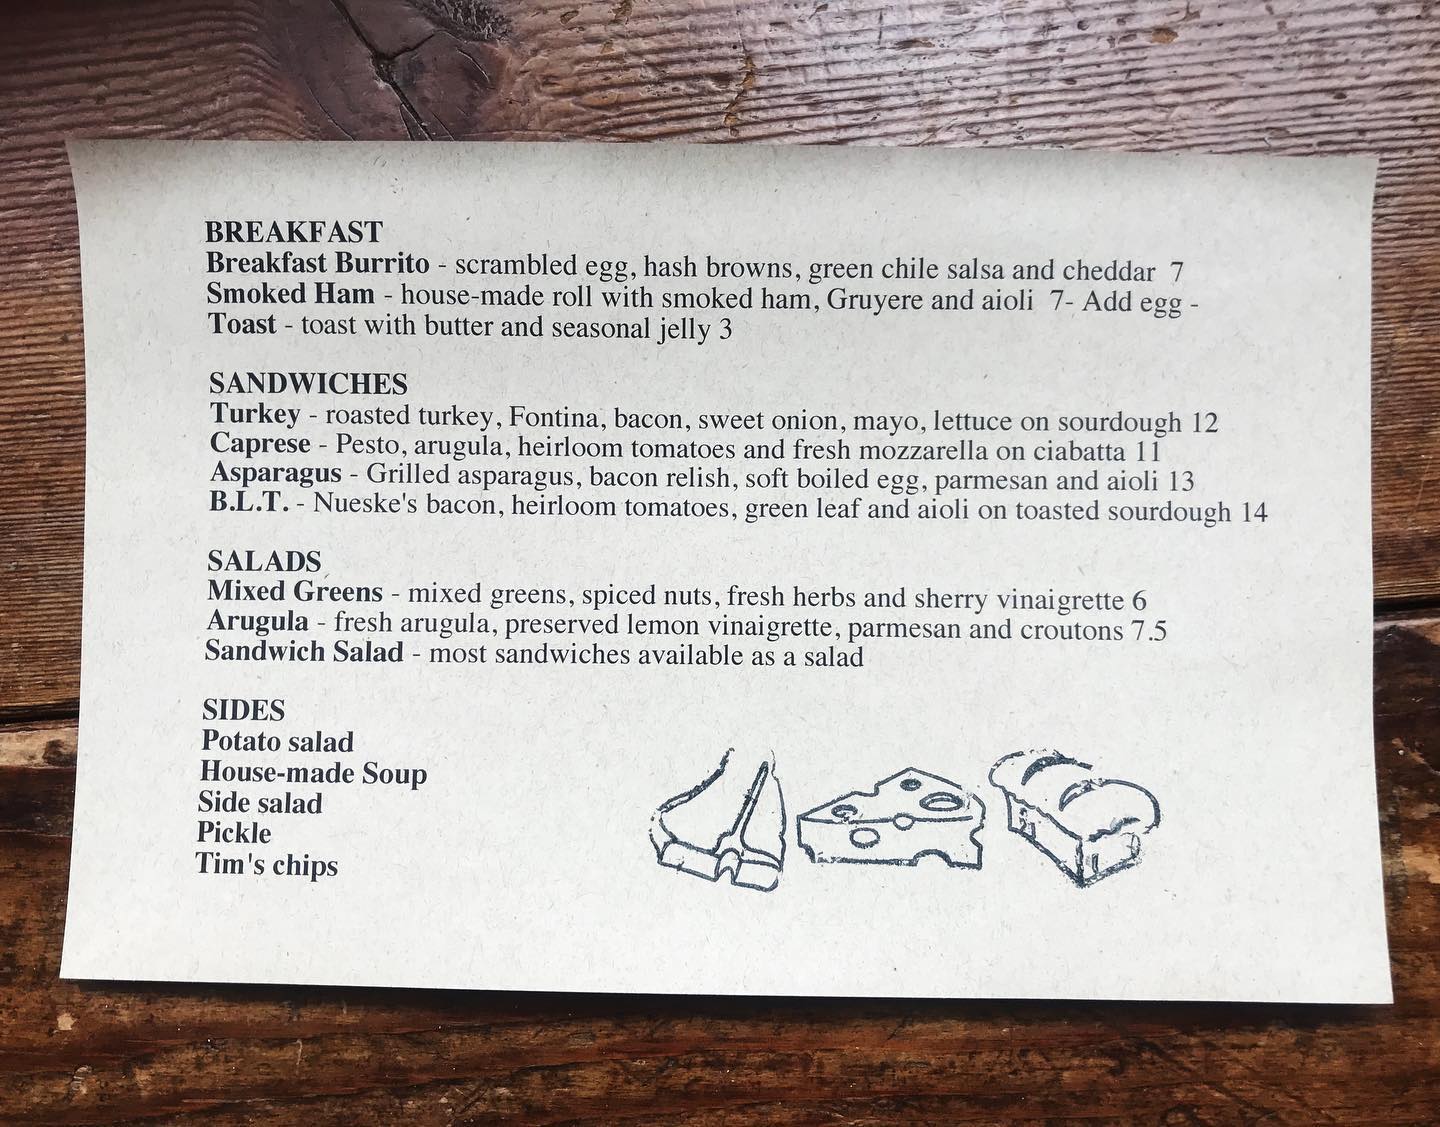 BREAKFAST
Breakfast Burrito - scrambled egg, hash browns, green chile salsa and cheddar 7
Smoked Ham - house-made roll with smoked ham, Gruyere and aioli 7- Add egg -
Toast - toast with butter and seasonal jelly 3
SANDWICHES
Turkey - roasted turkey, Fontina, bacon, sweet onion, mayo, lettuce on sourdough 12
Caprese - Pesto, arugula, heirloom tomatoes and fresh mozzarella on ciabatta 11
Asparagus - Grilled asparagus, bacon relish, soft boiled egg, parmesan and aioli 13
B.L.T. - Nueske's bacon, heirloom tomatoes, green leaf and aioli on toasted sourdough 14
SALADS
Mixed Greens - mixed greens, spiced nuts, fresh herbs and sherry vinaigrette 6
Arugula - fresh arugula, preserved lemon vinaigrette, parmesan and croutons 7.5
Sandwich Salad - most sandwiches available as a salad
SIDES
Potato salad
House-made Soup
Side salad
Pickle
Tim's chips